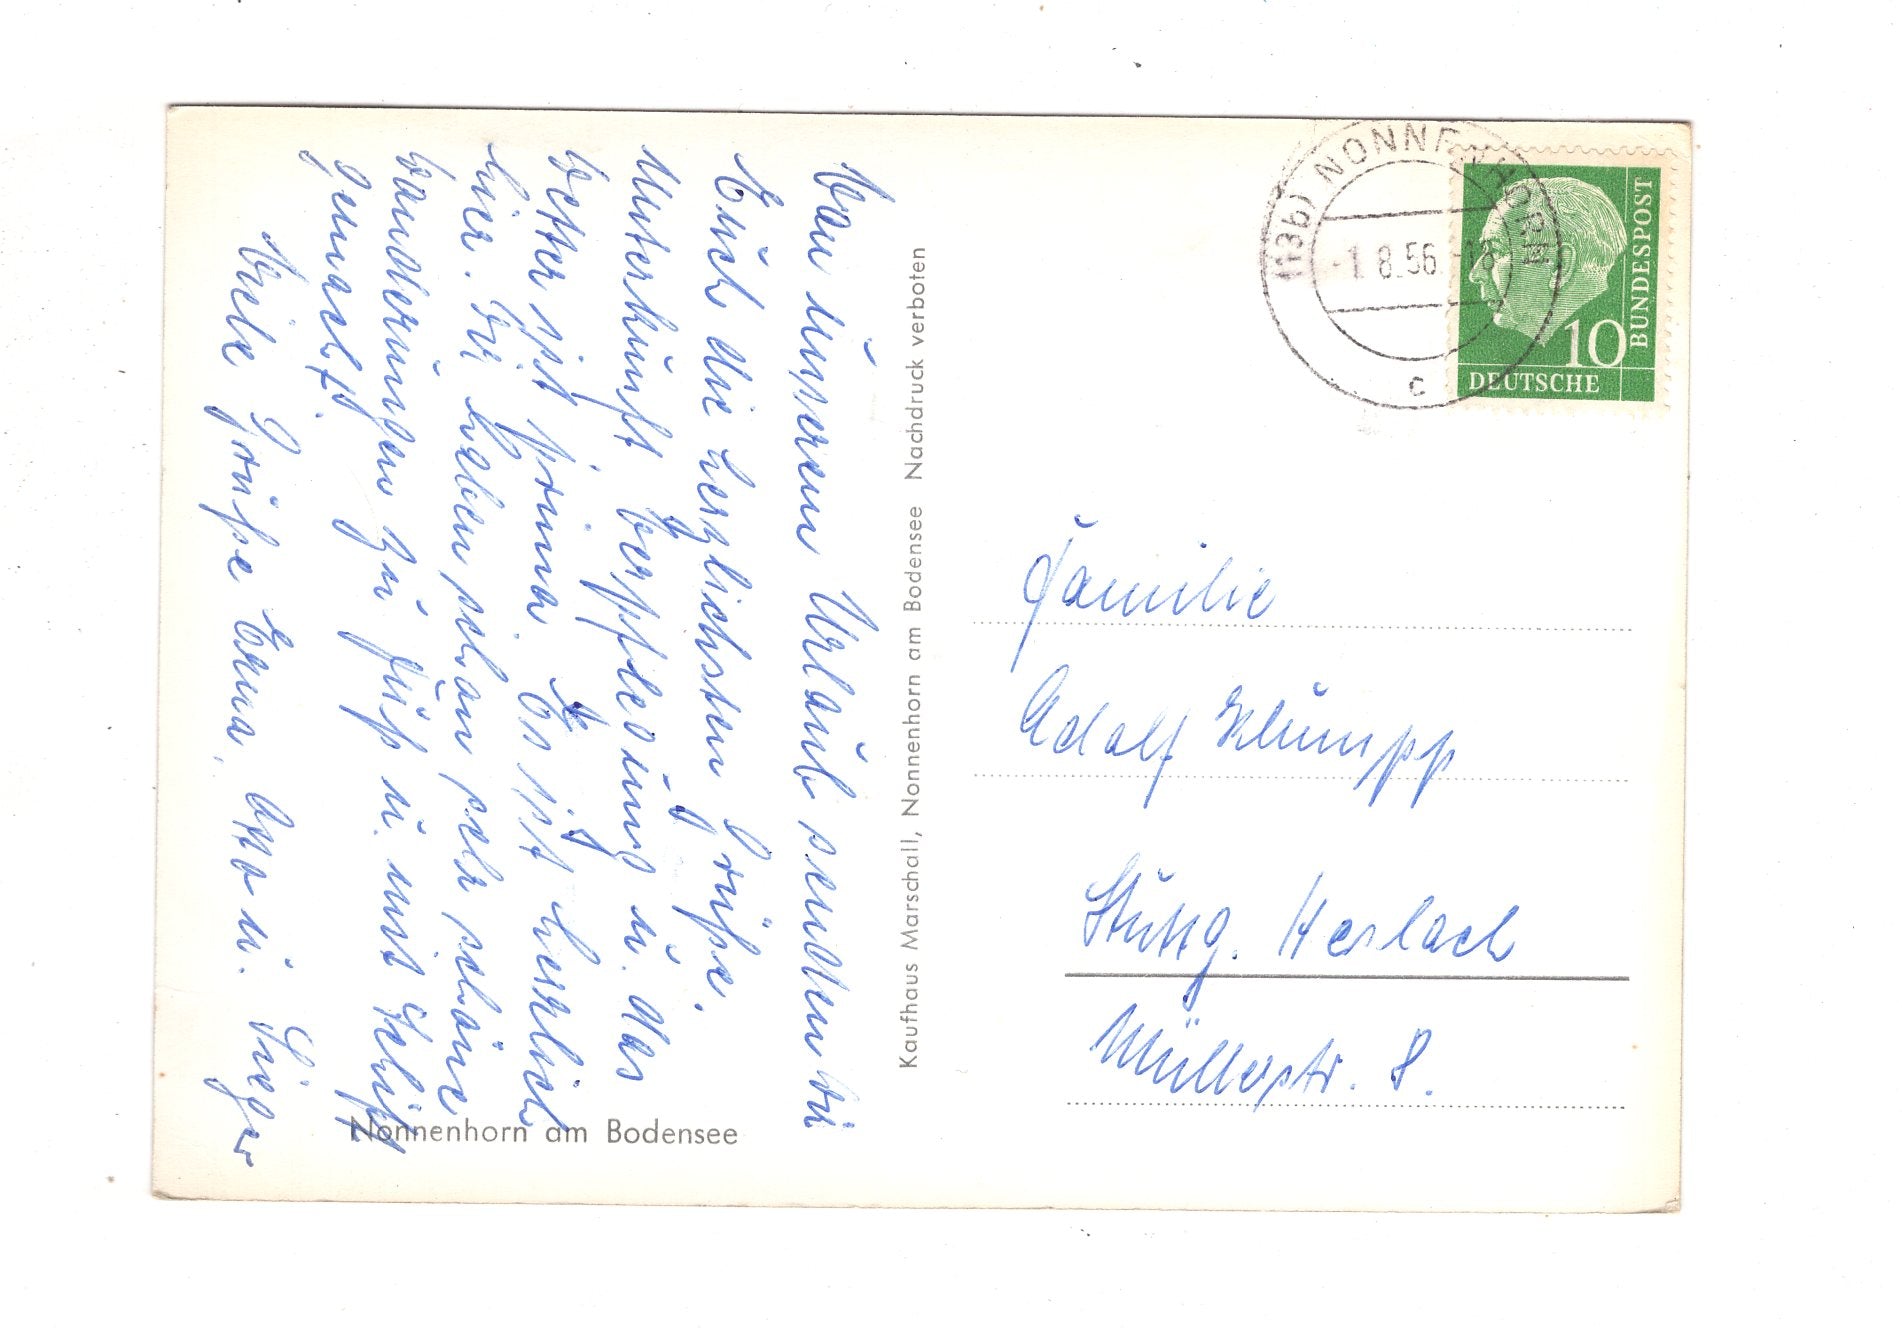 Von unserem Urlaub senden wir
Euch die herzlichsten Grüße.
Unterkunft Verpflegung u. das
Wetter ist prima. Es ist herrlich
hier. Wir haben schon sehr schöne
Wanderungen zu Fuß u. mit Schiff
gemacht.
Viele Grüße Erna, Otto u.
Nonnenhorn am Bodensee
Kaufhaus Marschall, Nonnenhorn am Bodensee Nachdruck verboten
(13b) NONNENHORN
-1.8.56.-18
c
10
DEUTSCHE
BUNDESPOST
Familie
Adolf Klumpp
Stuttg. Heslach
Müllerstr. 8.